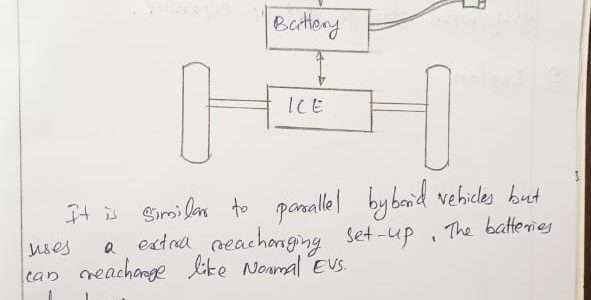 Battery
ICE
It is similar to parallel hybrid vehicles but
uses a extra reacharging set-up. The batteries
can reacharge like Normal EVs.